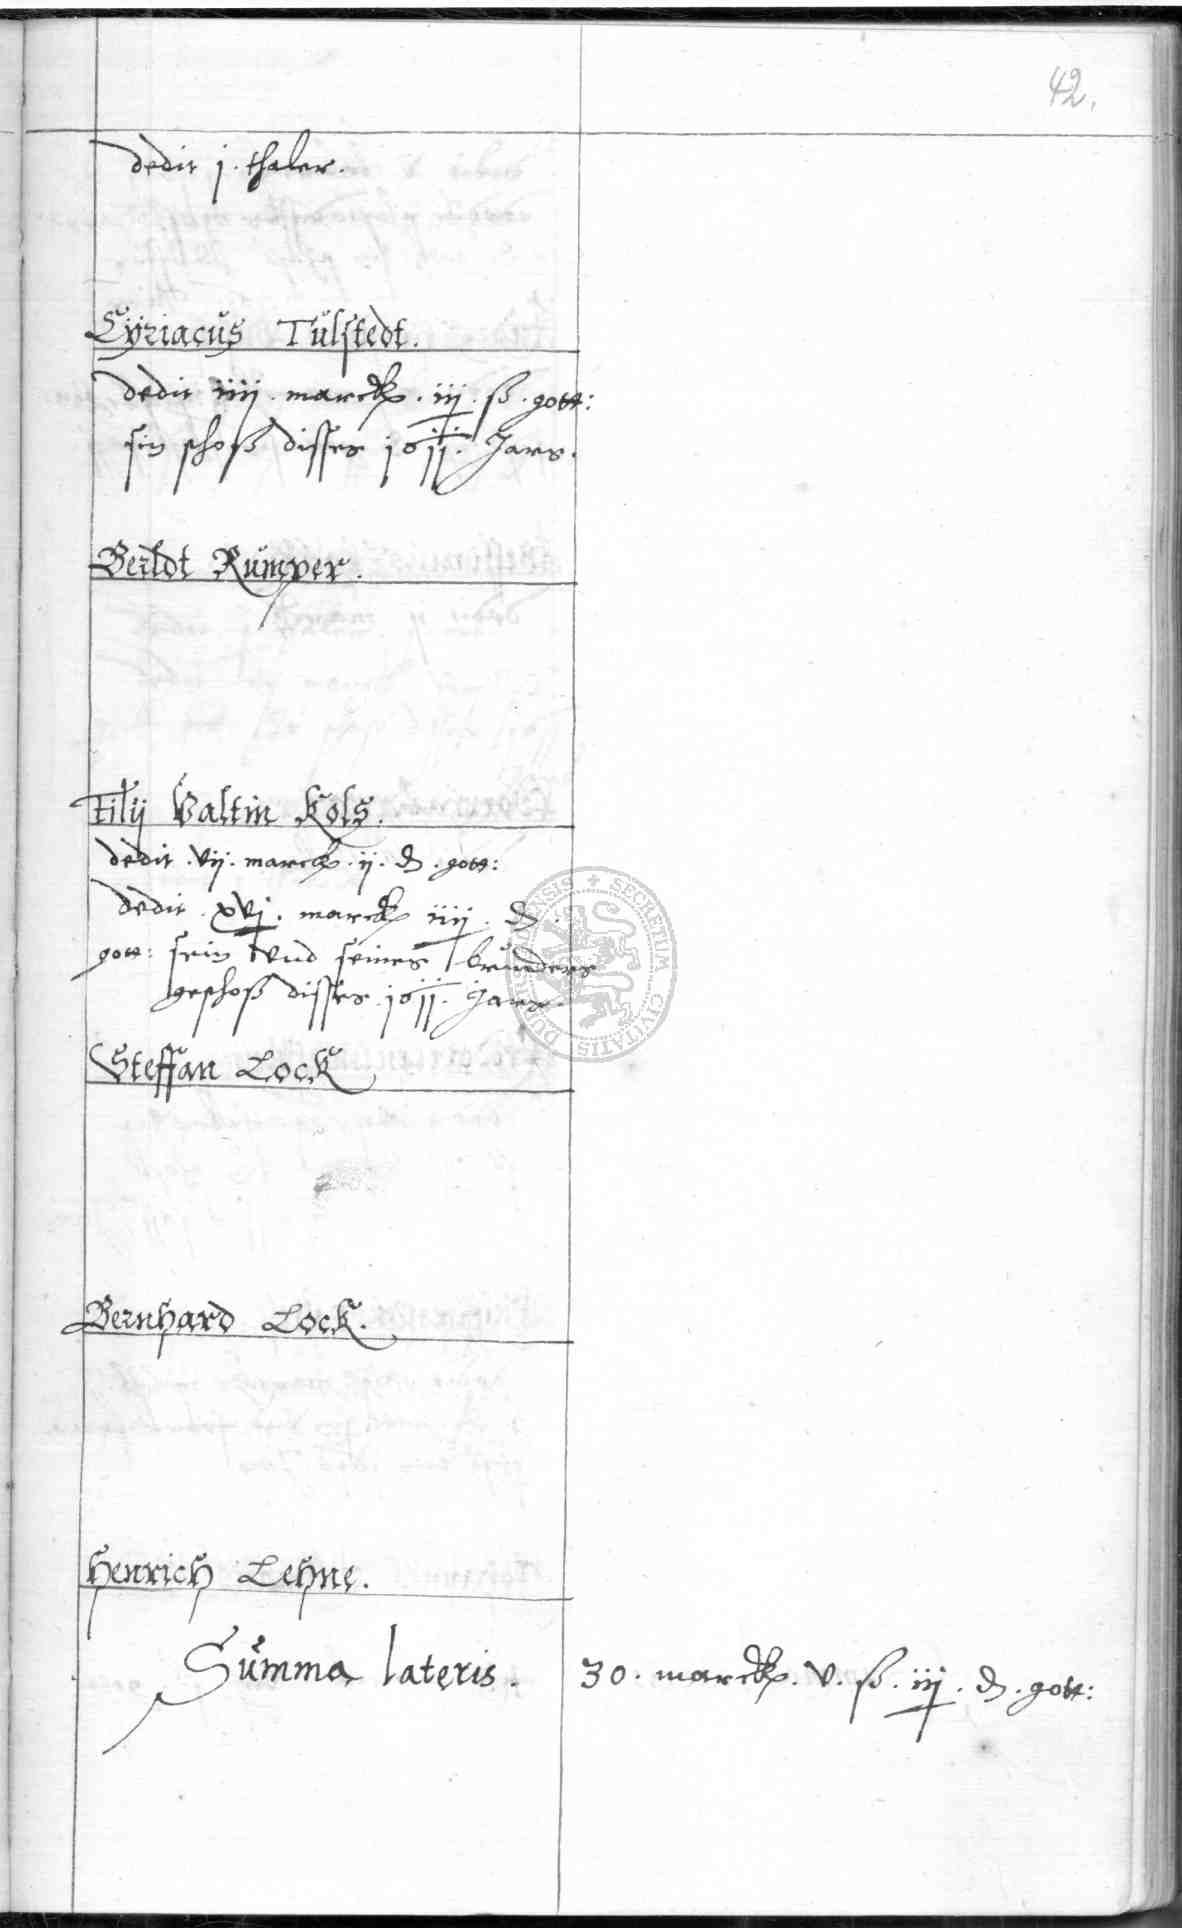 42.
dedit j. thaler.
Cyriacus Tulstedt.
dedit iiij. marck. iij. ß. gott:
sin schoß disses 1611. Jars.
Berldt Rumper.
filij Valtin Kols.
dedit. vij. marck. ij. ₰. gott:
dedit. xvj. marck iiij. ₰.
gott: sein vnd seines brudders
geschoß disses. 1611. Jars.
Steffan Lock
Bernhard Lock.
Henrich Lehne.
Summa lateris. 30. marck. v. ß. iij. ₰. gott:
SECRETUM CIVITATIS